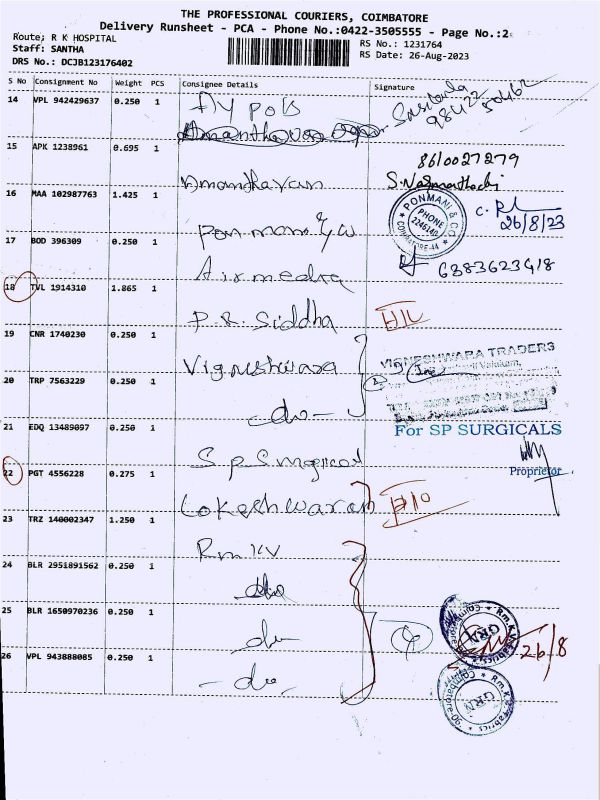 THE PROFESSIONAL COURIERS, COIMBATORE
Delivery Runsheet - PCA - Phone No.:0422-3505555 - Page No.:2
Route: R K HOSPITAL
Staff: SANTHA
DRS No.: DCJB123176402
RS No.: 1231764
RS Date: 26-Aug-2023
S No Consignment No Weight PCS Consignee Details Signature
14 VPL 942429637 0.250 1
98422 50462
15 APK 1238961 0.695 1 Amanthavan
8610027279
16 MAA 102987763 1.425 1 Ponmani & co
PONMANI & CO
PHONE
2246140
COIMBATORE-44
26/8/23
17 BOD 396309 0.250 1 Airmedia
6383623418
18 TVL 1914310 1.865 1 P.R. Siddha
19 CNR 1740230 0.250 1 Vigneshwara
VIGNESHWARA TRADERS
20 TRP 7563229 0.250 1 - do -
21 EDQ 13489097 0.250 1 S P Surgical
For SP SURGICALS
Proprietor
22 PGT 4556228 0.275 1 Lokeshwaran
23 TRZ 140002347 1.250 1 Rm KV
24 BLR 2951891562 0.250 1 do
25 BLR 1650970236 0.250 1 do
4
GRN
26/8
26 VPL 943888085 0.250 1 - do -
GRN